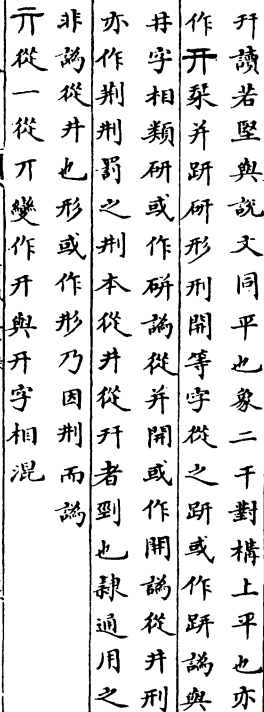 幵讀若堅與說文同平也象二干對構上平也亦
作开栞并趼研形刑開等字從之趼或作跰譌與
井字相類研或作硑譌從并開或作開譌從井刑
亦作荆荆罰之荆本從井從幵者剄也隷通用之
非譌從井也形或作形乃因荆而譌
亓從一從丌變作开與开字相混